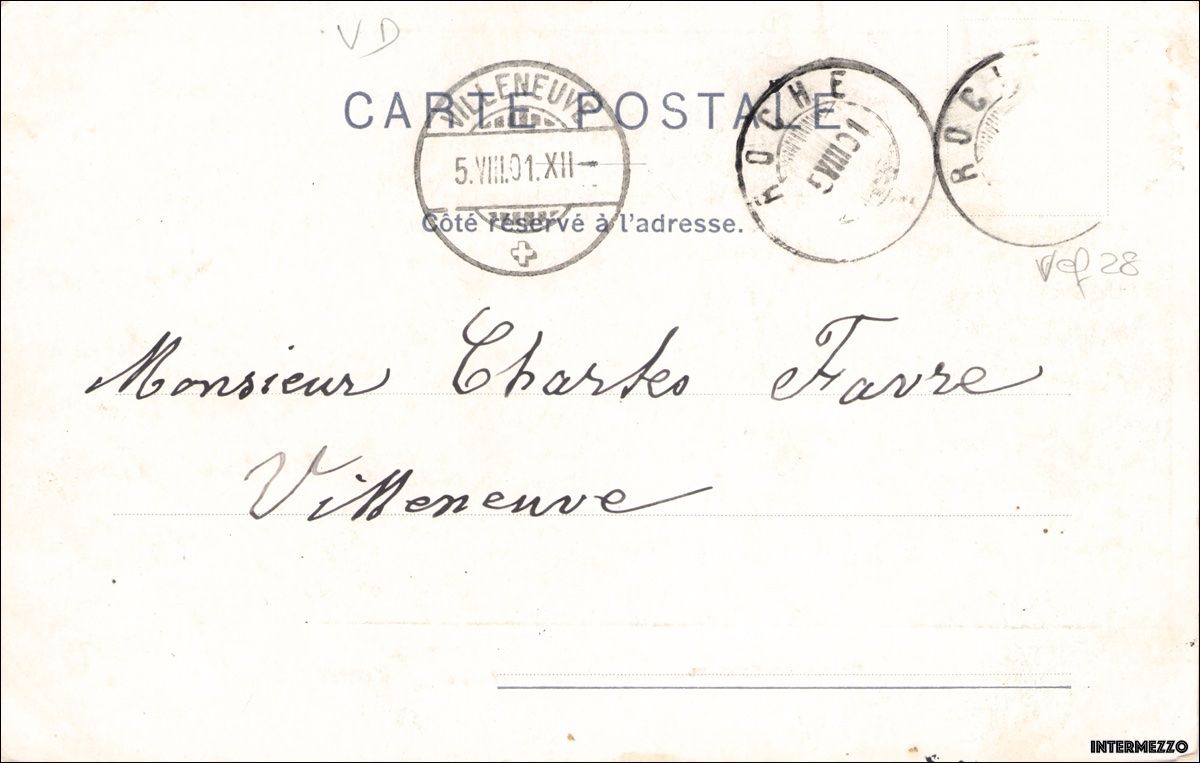 VD
CARTE POSTALE
VILLENEUVE
5.VIII.01.XII
ROCHE
ROC
Côté réservé à l'adresse.
28
Monsieur Charles Favre
Villeneuve
INTERMEZZO